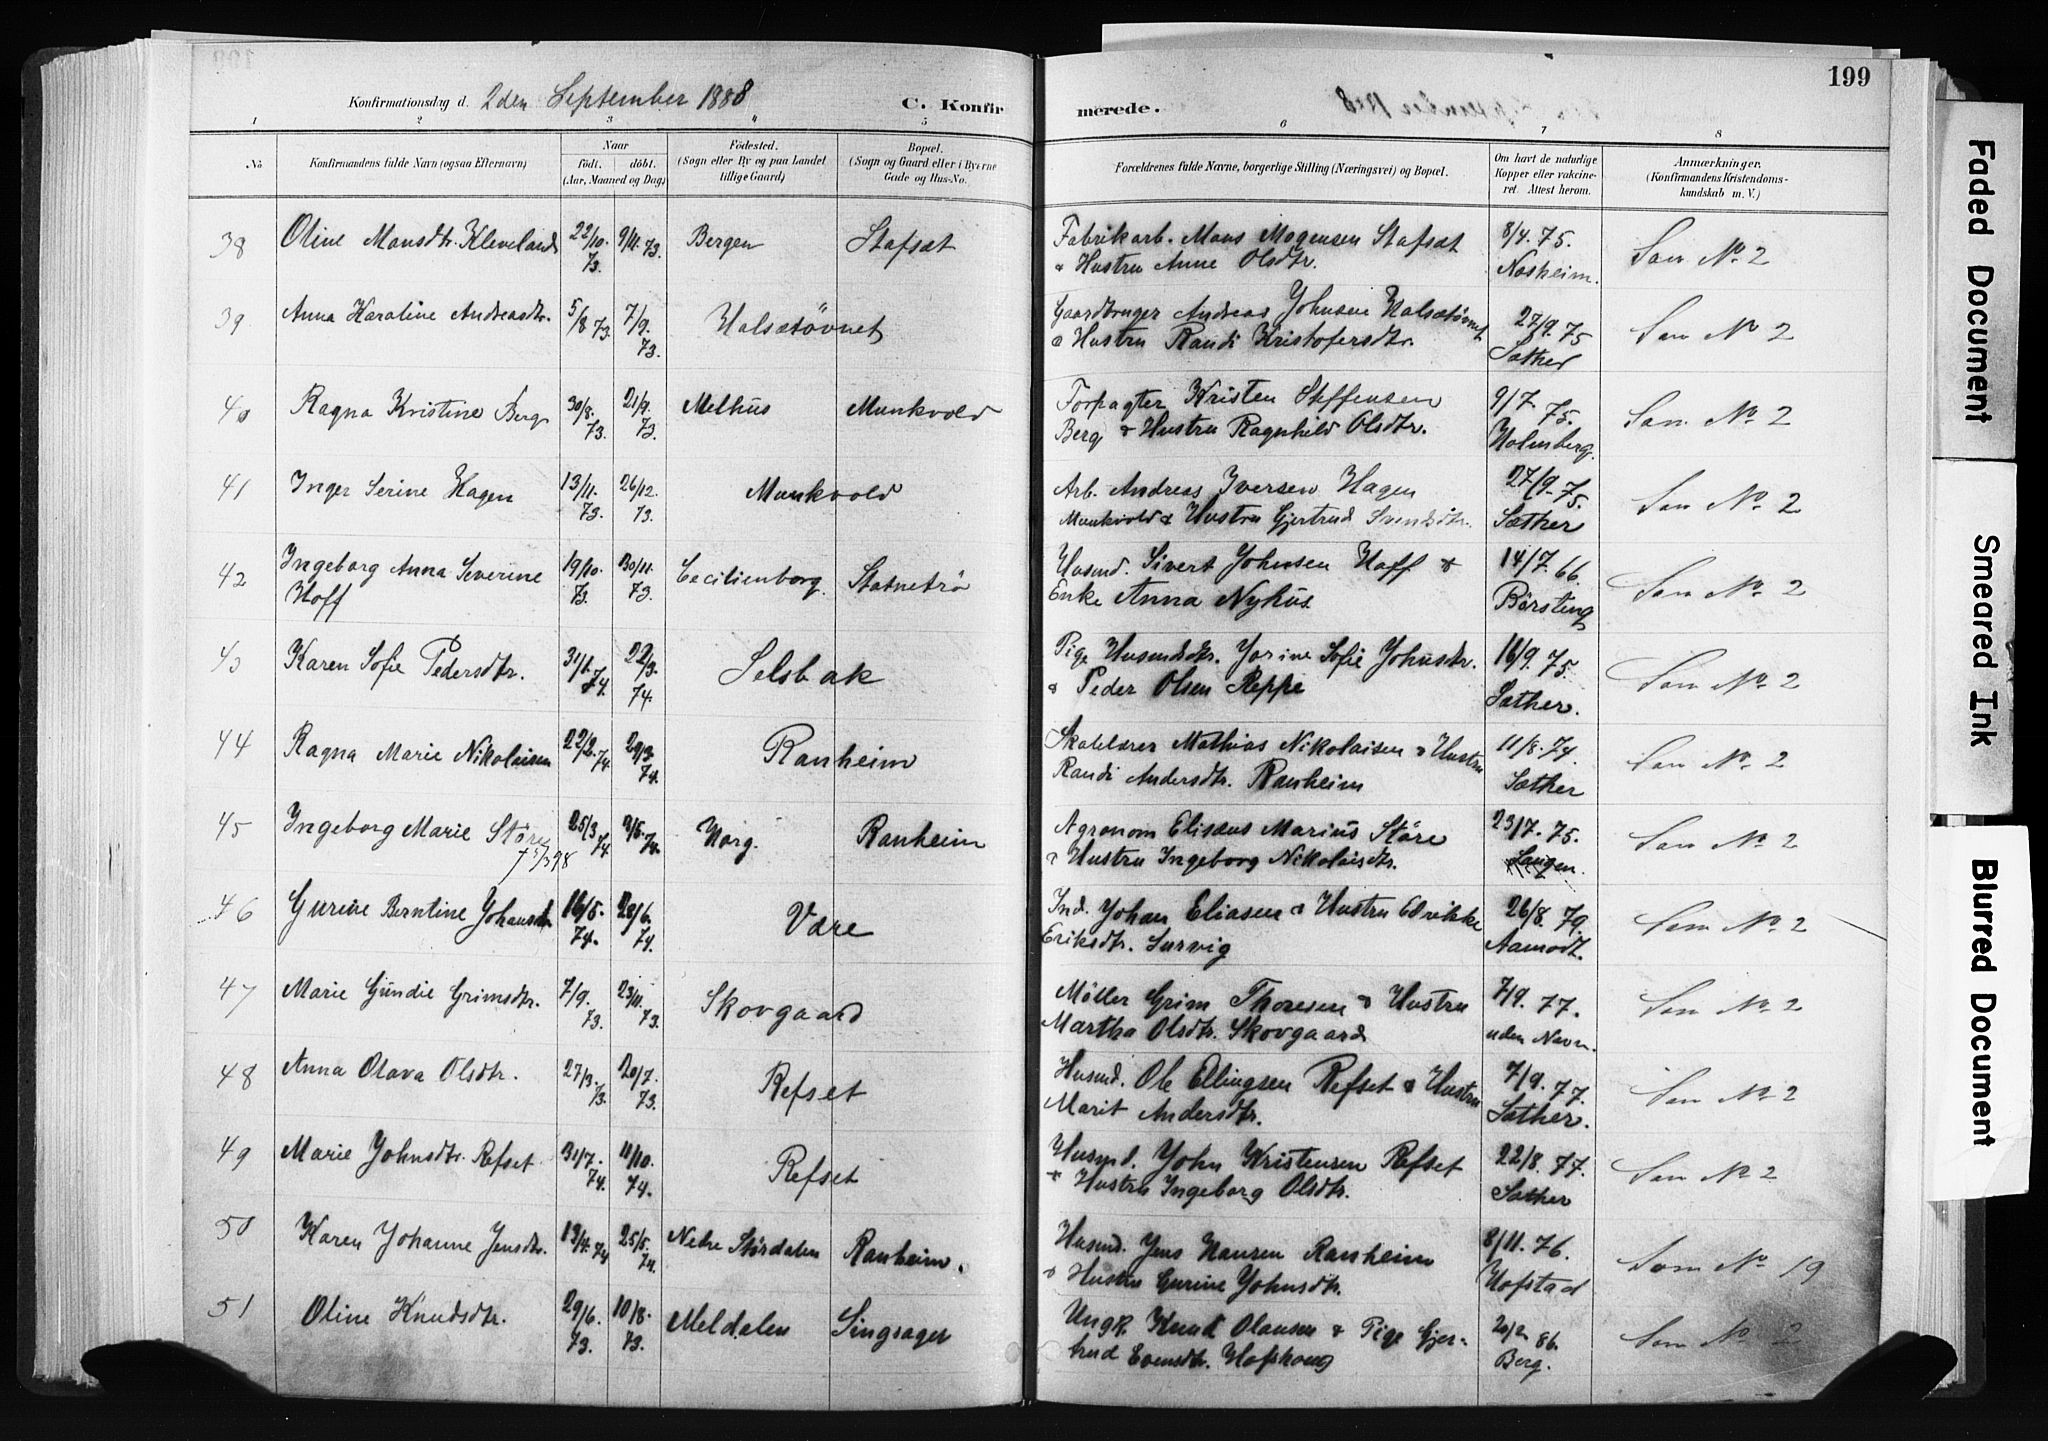 199
Konfirmationsdag d. 2den September 1888 C. Konfirmerede.
1 2 3 4 5 6 7 8
No Konfirmandens fulde Navn (ogsaa Efternavn) Naar født. døbt. (Aar, Maaned og Dag) Fødested. (Sogn eller By og paa Landet tillige Gaard) Bopæl. (Sogn og Gaard eller i Byerne Gade og Hus-No. Forældrenes fulde Navne, borgerlige Stilling (Næringsvei) og Bopæl. Om havt de naturlige Kopper eller vakcineret. Attest herom. Anmærkninger. (Konfirmandens Kristendomskundskab m. V.)
38 Oline Monsdtr. Kleveland 22/10. 73. 9/11. 73. Bergen Stafsæt Fabrikarb. Mons Mogensen Stafsæt 8/4. 75. Som No 2
& Hustru Anne Olsdtr. Nasheim.
39 Anna Karoline Andreasdtr. 5/8 73. 7/9. 73. Halsetøvnet Gaardbruger Andreas Johnsen Halsetøvnet 27/9. 75 Som No 2
& Hustru Randi Kristofersdtr. Sæther
40 Ragna Kristine Berg 30/8. 73. 21/9. 73. Melhus Munkvold Forpagter Kristen Steffensen 9/7. 75. Som No 2
Berg & Hustru Ragnhild Olsdtr. Holmberg.
41 Inger Serine Hagen 13/11. 73. 26/12. 73. Munkvold Arb. Andreas Iversen Hagen 27/9. 75. Som No 2
Munkvold & Hustru Gjertrud Svendsdtr. Sæther
42 Ingeborg Anna Severine 19/10. 73. 30/11. 73. Cecilienborg. Statnetrø Husmd. Sivert Johnsen Hoff & 14/7. 66. Som No 2
Hoff Enke Anna Nyhus Børsting
43 Karen Sofie Pedersdtr. 31/1. 74. 22/3. 74. Selsbak Pige Husmdsdtr. Jorine Sofie Johnsdtr. 16/9. 75. Som No 2
& Peder Olsen Reppe Sæther.
44 Ragna Marie Nikolaisen 22/2. 74. 29/3 74. Ranheim Skolelærer Mathias Nikolaisen & Hustru 11/8. 74. Som No 2
Randi Andersdtr. Ranheim Sæther
45 Ingeborg Marie Støre 25/3 74 3/5. 74. Horg. Ranheim Agronom Eliseus Marius Støre 23/7. 75. Som No 2
† 5/3 98 & Hustru Ingeborg Nikolaisdtr. Langen.
46 Gurine Berntine Johansdtr 16/5. 74. 28/6. 74. Være Ind. Johan Eliasen & Hustru Edrikke 26/8. 79. Som No 2
Eriksdtr. Survig Aamodt.
47 Marie Gundie Grimsdtr. 7/9. 73. 23/11. 73. Skovgaard Møller Grim Thoresen & Hustru 7/9. 77. Som No 2
Martha Olsdtr. Skovgaard uden Navn.
48 Anna Olava Olsdtr. 27/3. 73. 20/7. 73. Refset Husmd. Ole Ellingsen Refset & Hustru 7/9. 77. Som No 2
Marit Andersdtr. Sæther.
49 Marie Johnsdtr. Refset 31/7. 74. 11/10. 74. Refset Husmd. John Kristensen Refset 22/8. 77. Som No 2
& Hustru Ingeborg Olsdtr. Sæther
50 Karen Johanne Jensdtr. 13/4. 74 25/5. 74. Nedre Størdalen Ranheim. Husmd. Jens Hansen Ranheim 8/11. 76. Som No 19
& Hustru Gurine Johnsdtr. Hofstad
51 Oline Knudsdtr. 29/6. 73. 10/8. 73. Meldalen Singsager Ungk. Knud Olausen & Pige Gjer- 20/2 86. Som No 2
trud Evensdtr. Hofskoug Berg.
Faded Document
Smeared Ink
Blurred Document